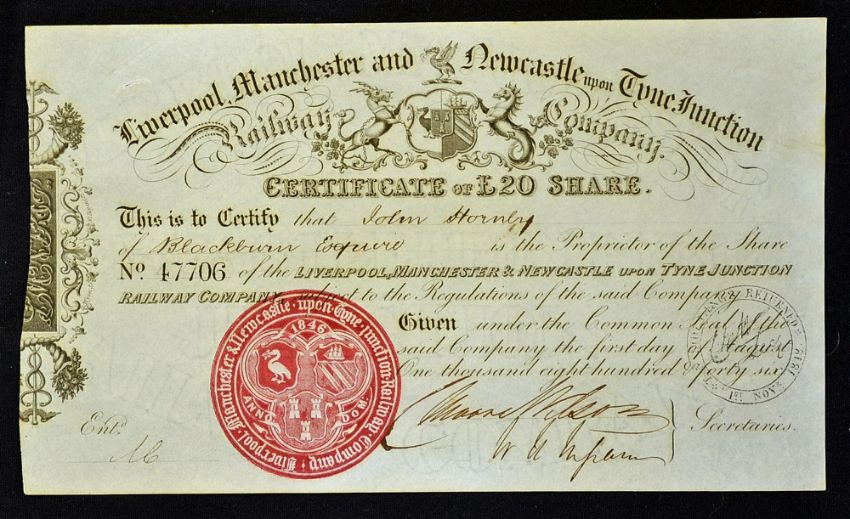 Liverpool, Manchester and Newcastle upon Tyne Junction
Railway Company.
CERTIFICATE OF £20 SHARE.
This is to Certify that John Hornby
of Blackburn Esquire is the Proprietor of the Share
No. 47706 of the LIVERPOOL, MANCHESTER & NEWCASTLE UPON TYNE JUNCTION
RAILWAY COMPANY, subject to the Regulations of the said Company.
Given under the Common Seal of the
said Company the first day of August
One thousand eight hundred & forty six
Secretaries.
Entd.
Liverpool, Manchester & Newcastle upon Tyne Junction Railway Company
1846
ANNO DOM.
RETURNED
1ST NOVR